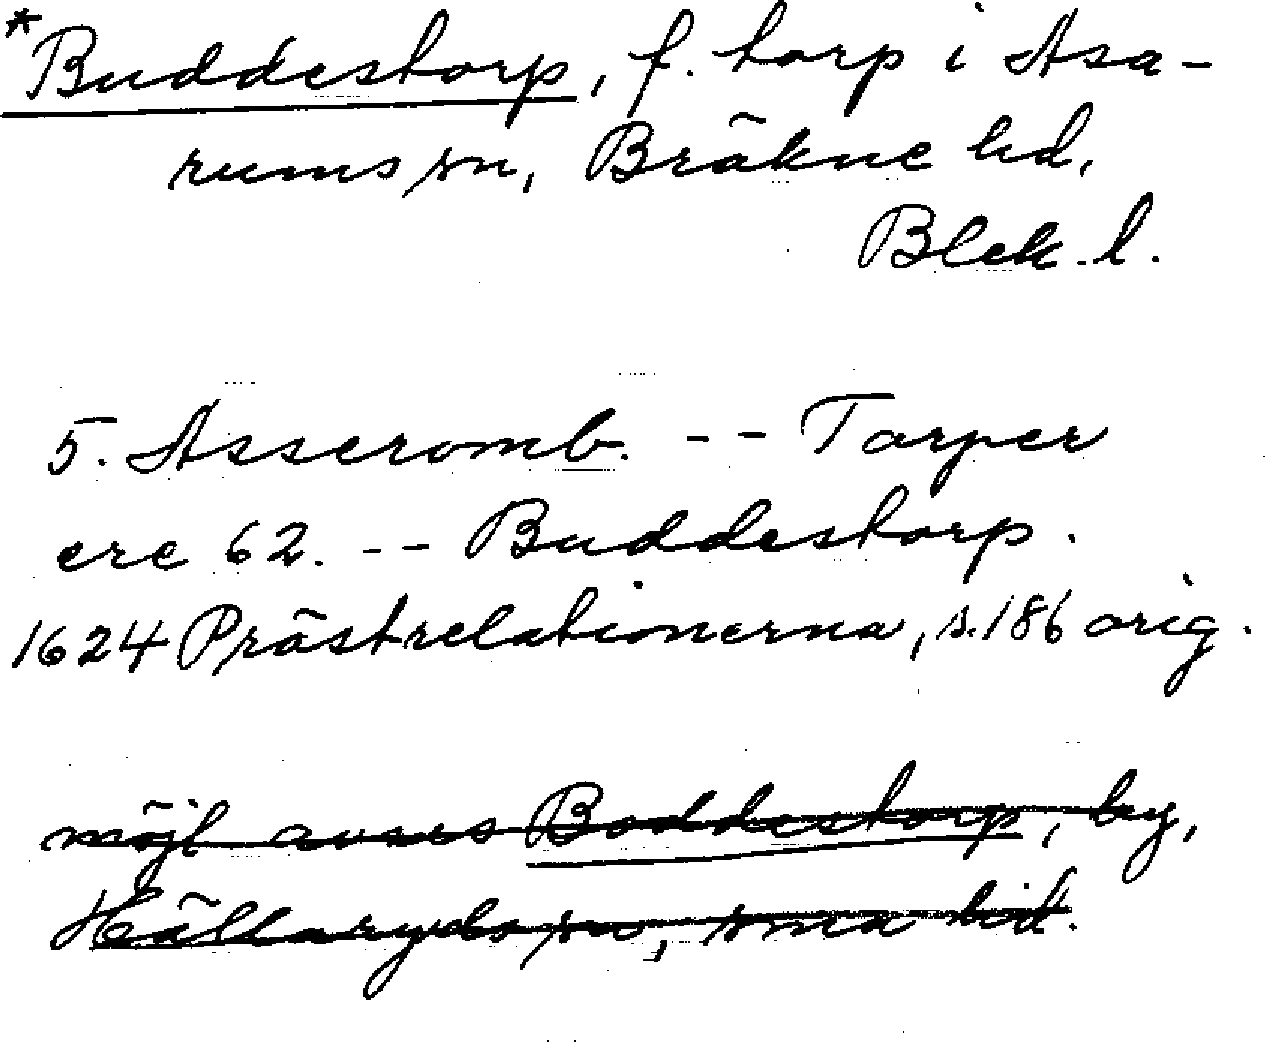 *Buddestorp, f. torp i Asa-
rums sn, Bräkne hd,
Blek. l.
5. Asseromb. -- Tarper
ere 62. -- Buddestorp.
1624 Prästrelationerna, s. 186 orig.
möjl avses Boddestorp, by,
Hällaryds sn, sma hd.